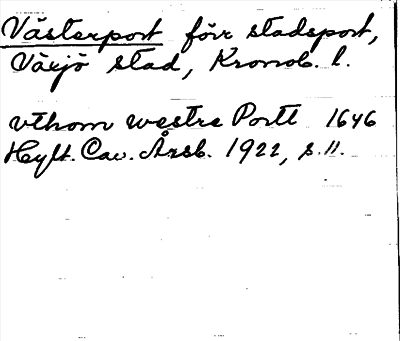 Västerport förr stadsport,
Växjö stad, Kronob. l.
vthom westre Portt 1646
Hylt. Cav. Årsb. 1922, s. 11.